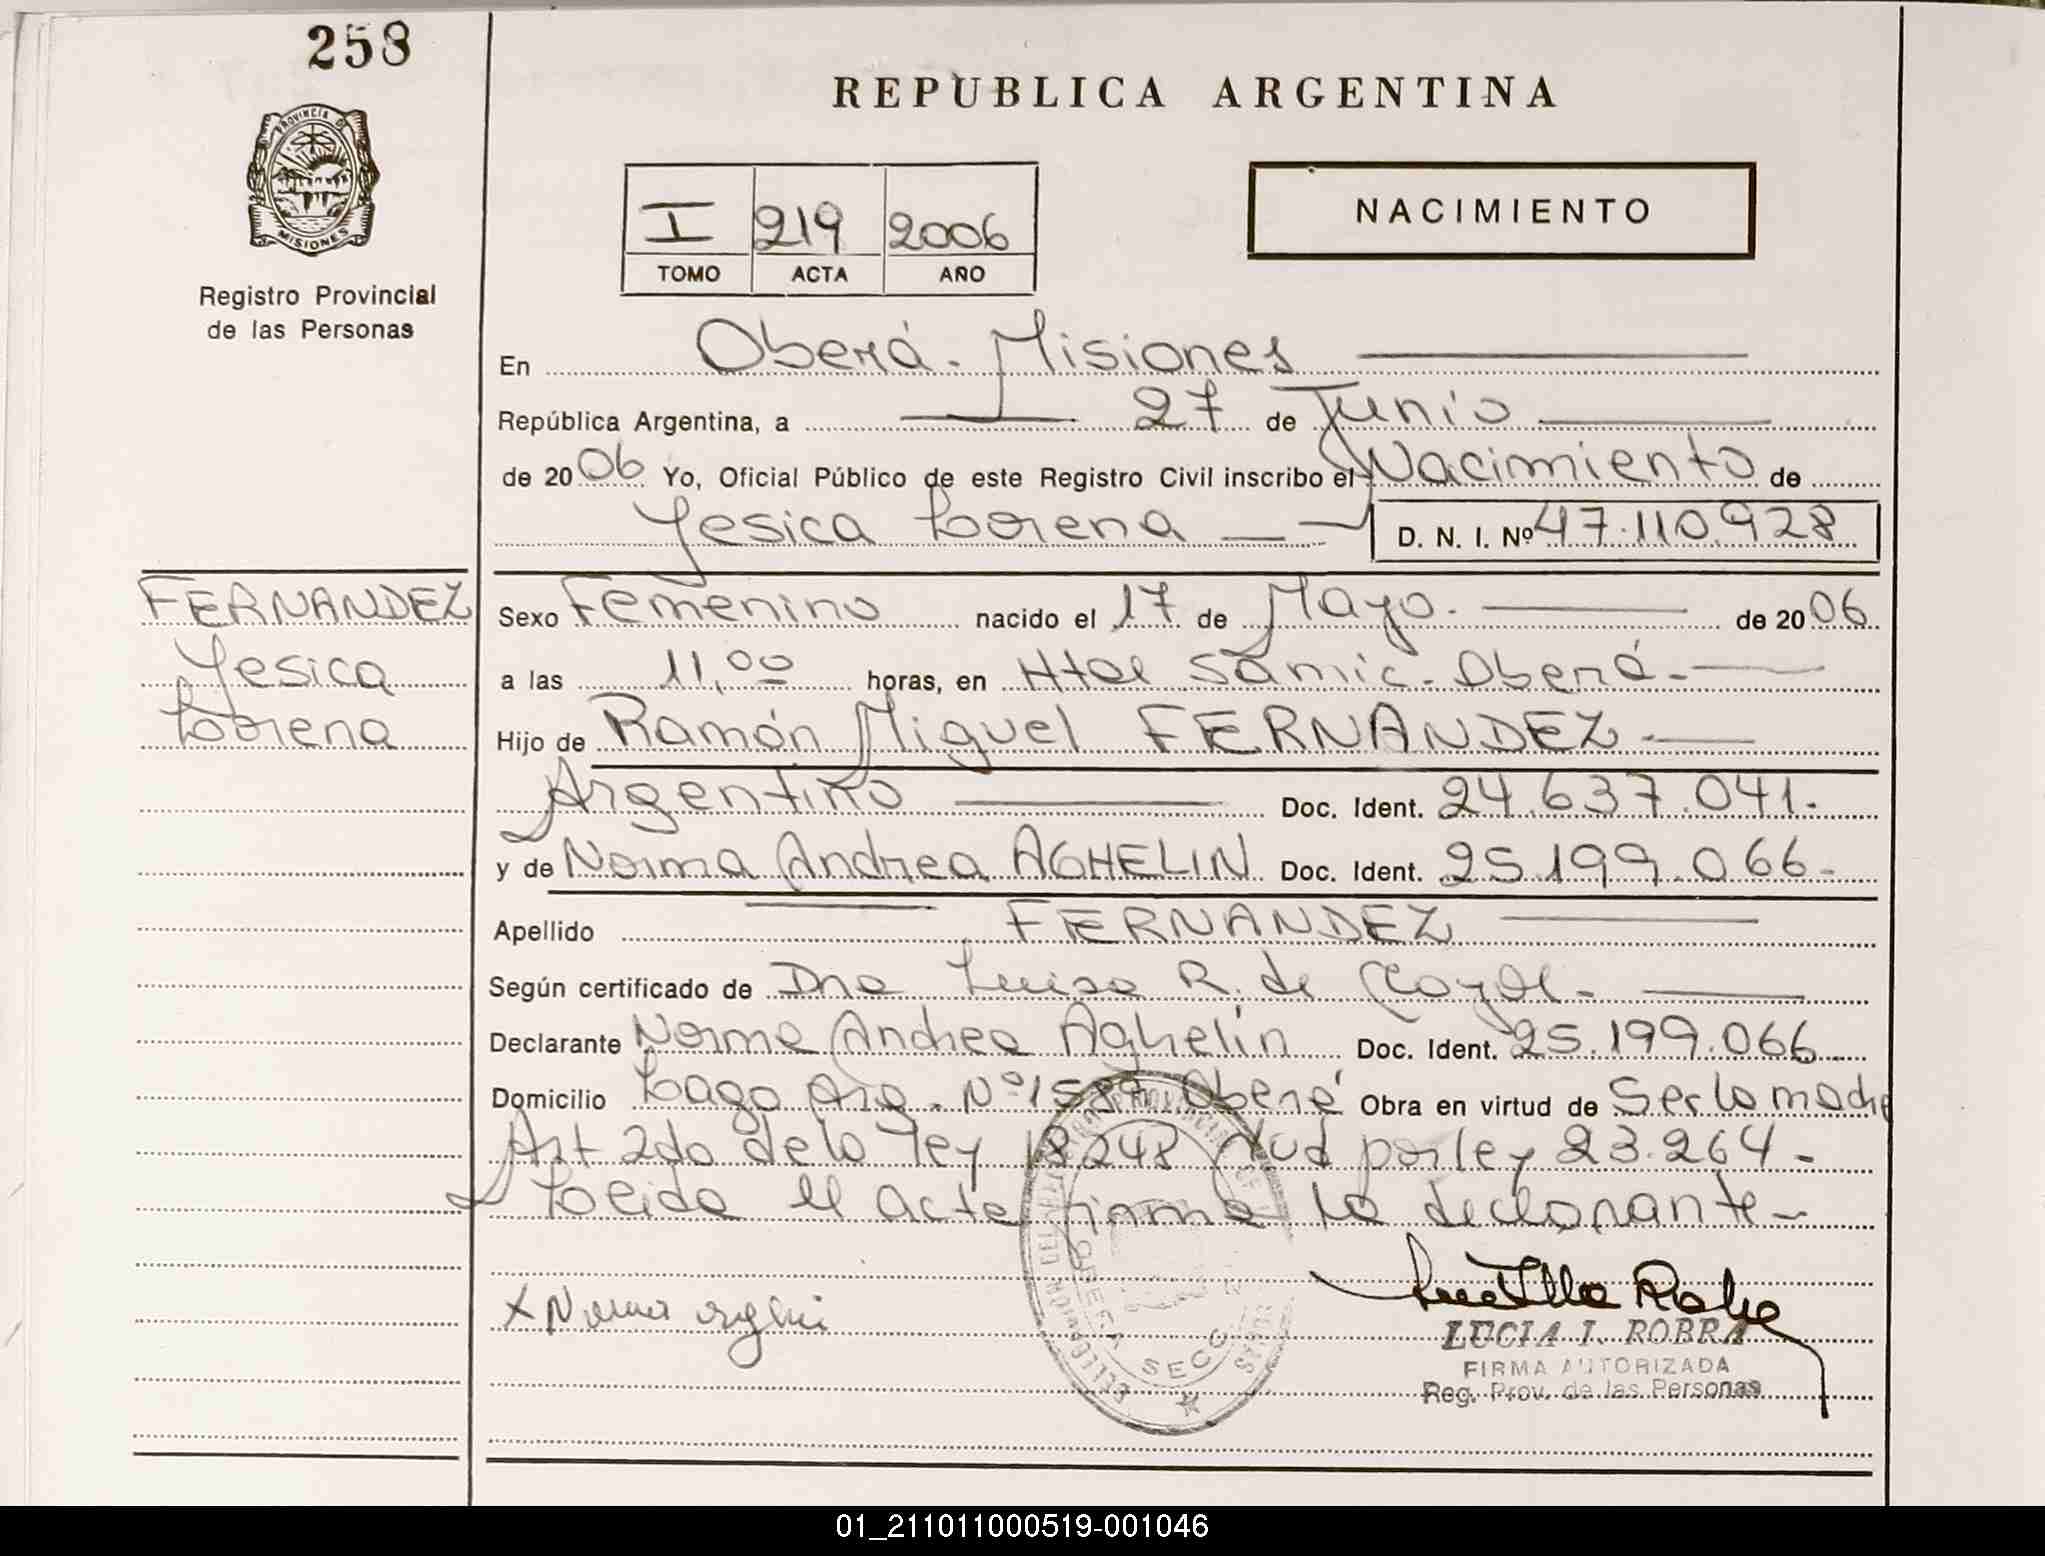 258
PROVINCIA DE
MISIONES
Registro Provincial
de las Personas
REPUBLICA ARGENTINA
I 219 2006
TOMO ACTA AÑO
NACIMIENTO
En Oberá - Misiones
República Argentina, a 27 de Junio
de 2006 Yo, Oficial Público de este Registro Civil inscribo el Nacimiento de
Yesica Lorena D. N. I. Nº 47.110.928
FERNANDEZ
Yesica
Lorena
Sexo Femenino nacido el 17 de Mayo. de 2006
a las 11,00 horas, en Htal Samic - Oberá -
Hijo de Ramón Miguel FERNANDEZ -
Argentino Doc. Ident. 24.637.041.
y de Norma Andrea AGHELIN Doc. Ident. 25.199.066 -
Apellido FERNANDEZ
Según certificado de Dra Luisa R. de
Declarante Norma Andrea Aghelin Doc. Ident. 25.199.066
Domicilio Lago Arg. Nº 1587 Oberá Obra en virtud de Ser la madre
Art 2do de la ley 18.248 por ley 23.264 -
Leida el acta firma la declarante -
x Norma
OBERA SECC
LUCIA I. ROBRA
FIRMA AUTORIZADA
Reg. Prov. de las Personas
01_211011000519-001046